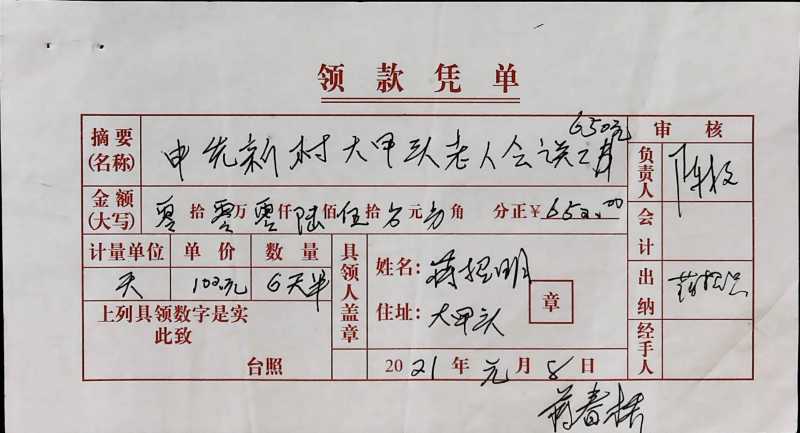 领款凭单
摘要(名称) 申先新村大甲头老人会误工 650元
审核
金额(大写) 零拾零万零仟陆佰伍拾 元 角 分正¥650.00
负责人 陈
会计
计量单位 单价 数量
天 100元 6天半
具领人盖章
姓名: 蒋 明
住址: 大甲头
章
出纳 蒋
上列具领数字是实
此致
台照
2021年元月8日
经手人
蒋春